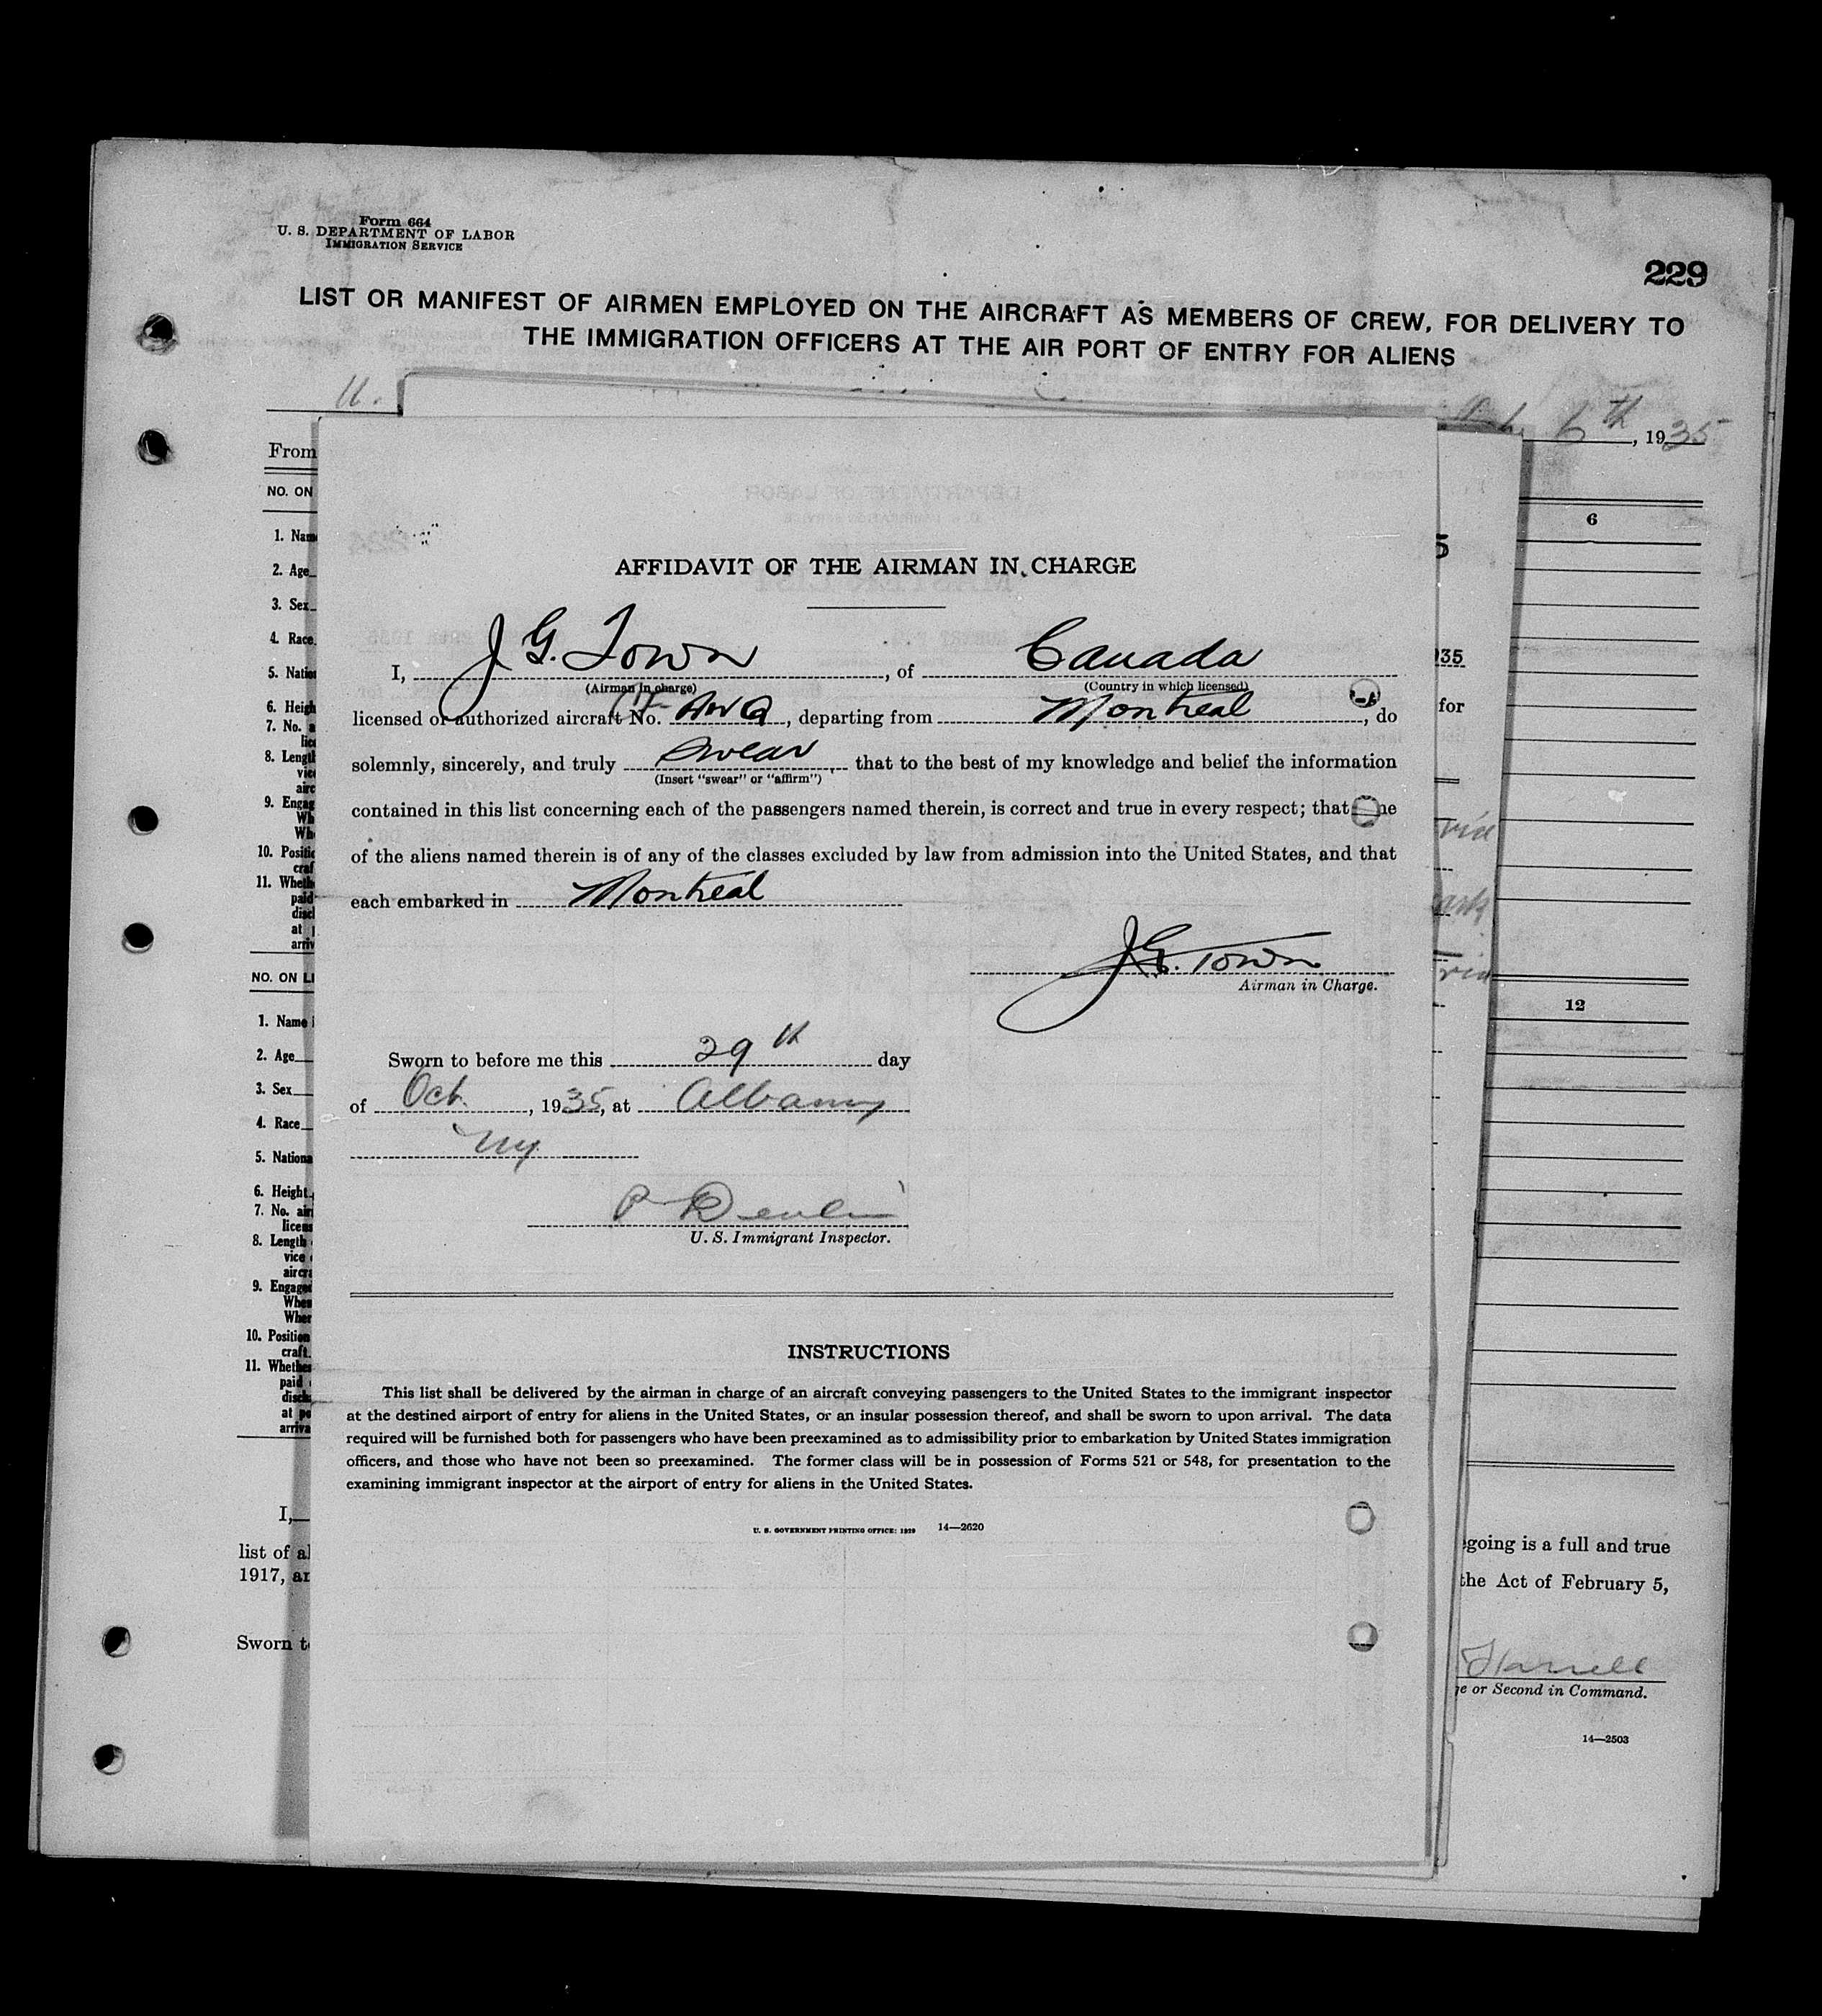 Form 664
U. S. DEPARTMENT OF LABOR
IMMIGRATION SERVICE
229
LIST OR MANIFEST OF AIRMEN EMPLOYED ON THE AIRCRAFT AS MEMBERS OF CREW, FOR DELIVERY TO
THE IMMIGRATION OFFICERS AT THE AIR PORT OF ENTRY FOR ALIENS
6th, 1935
From
NO. ON
6
1. Nam
2. Age
3. Sex
4. Race
5. Natio
6. Heigh
7. No. a
lic
8. Lengt
vic
airc
9. Engag
Wh
Wh
10. Positi
craf
11. Wheth
paid
discl
at
arriv
NO. ON LI
12
1. Name
2. Age
3. Sex
4. Race
5. Nationa
6. Height
7. No. air
licens
8. Length
vice
aircra
9. Engaged
When
Wher
10. Position
craft.
11. Whether
paid
disch
at po
arriva
I,
list of al
1917, an
Sworn to
5
35
for
AFFIDAVIT OF THE AIRMAN IN CHARGE
I, J. G. Town, of Canada
(Airman in charge) (Country in which licensed)
licensed or authorized aircraft No. CF AWQ, departing from Montreal, do
solemnly, sincerely, and truly swear that to the best of my knowledge and belief the information
(Insert "swear" or "affirm")
contained in this list concerning each of the passengers named therein, is correct and true in every respect; that ne
of the aliens named therein is of any of the classes excluded by law from admission into the United States, and that
each embarked in Montreal
J. G. Town
Airman in Charge.
Sworn to before me this 29th day
of Oct., 1935, at Albany
NY.
P Devlin
U. S. Immigrant Inspector.
INSTRUCTIONS
This list shall be delivered by the airman in charge of an aircraft conveying passengers to the United States to the immigrant inspector
at the destined airport of entry for aliens in the United States, or an insular possession thereof, and shall be sworn to upon arrival. The data
required will be furnished both for passengers who have been preexamined as to admissibility prior to embarkation by United States immigration
officers, and those who have not been so preexamined. The former class will be in possession of Forms 521 or 548, for presentation to the
examining immigrant inspector at the airport of entry for aliens in the United States.
U. S. GOVERNMENT PRINTING OFFICE: 1929 14—2620
going is a full and true
the Act of February 5,
Harrell
ge or Second in Command.
14—2503